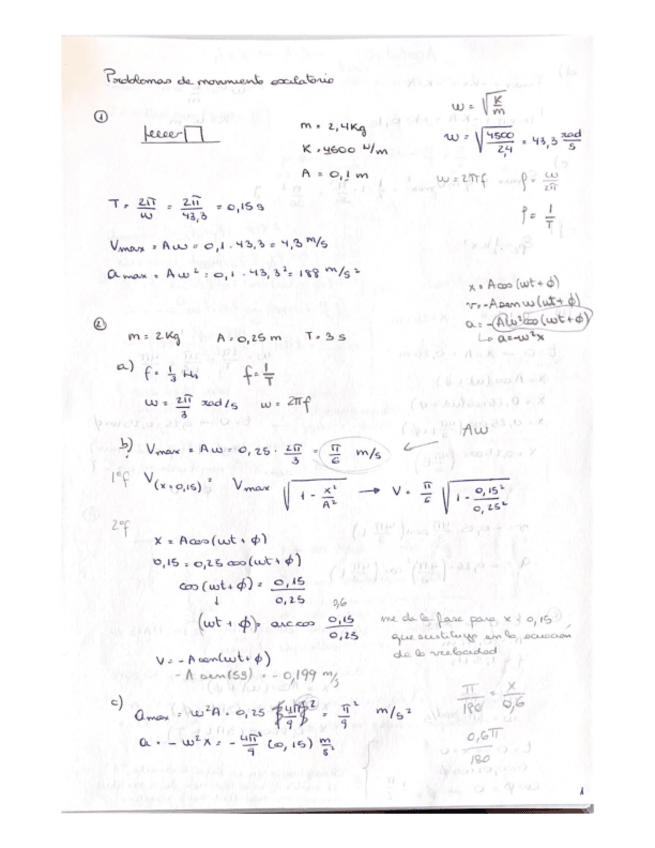 Problemas de movimiento oscilatorio
①
m = 2,4 Kg
K = 4500 N/m
A = 0,1 m
ω = √(K/m)
ω = √(4500/2,4) = 43,3 rad/s
ω = 2πf   f = ω/2π
f = 1/T
T = 2π/ω = 2π/43,3 = 0,15 s
Vmax = Aω = 0,1 · 43,3 = 4,3 m/s
amax = Aω² = 0,1 · 43,3² = 188 m/s²
x = A cos (ωt + ϕ)
v = -A sen ω (ωt + ϕ)
a = -Aω² cos (ωt + ϕ)
↳ a = -ω²x
②
m = 2 Kg   A = 0,25 m   T = 3 s
a) f = 1/3 Hz   f = 1/T
ω = 2π/3 rad/s   ω = 2πf
b) Vmax = Aω = 0,25 · 2π/3 = π/6 m/s ← Aω
1ºf V(x=0,15) = Vmax √(1 - x²/A²) → V = π/6 √(1 - 0,15²/0,25²)
2ºf
x = A cos (ωt + ϕ)
0,15 = 0,25 cos (ωt + ϕ)
cos (ωt + ϕ) = 0,15/0,25
↓ 0,6
(ωt + ϕ) = arc cos 0,15/0,25
me da la fase para x = 0,15
que sustituyo en la ecuación
de la velocidad
V = - A sen (ωt + ϕ)
- A sen (53) = - 0,199 m/s
c) amax = ω²A = 0,25 (4π²/9) = π²/9 m/s²
a = - ω²x = - 4π²/9 (0,15) m/s²
π/180 = x/0,6
0,6π/180
1